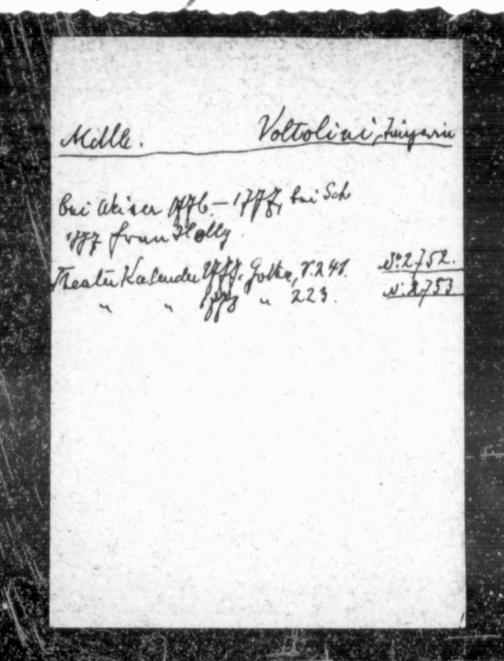 Mdlle. Voltolini, Sängerin
bei 1776 – 1777, bei Sch
1777 Frau Holly
Theater Kalender 1777. Gotha, S. 241. No. 2752.
" " 1778 " 223. N. 2753